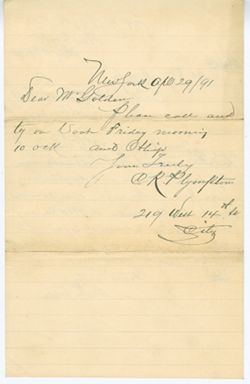 New York Oct 29/91
Dear Mr Golden
Please call and
try on Coat Friday morning
10 oclk and Oblige
Yours Truly
C R Plympton
219 West 14th St
City